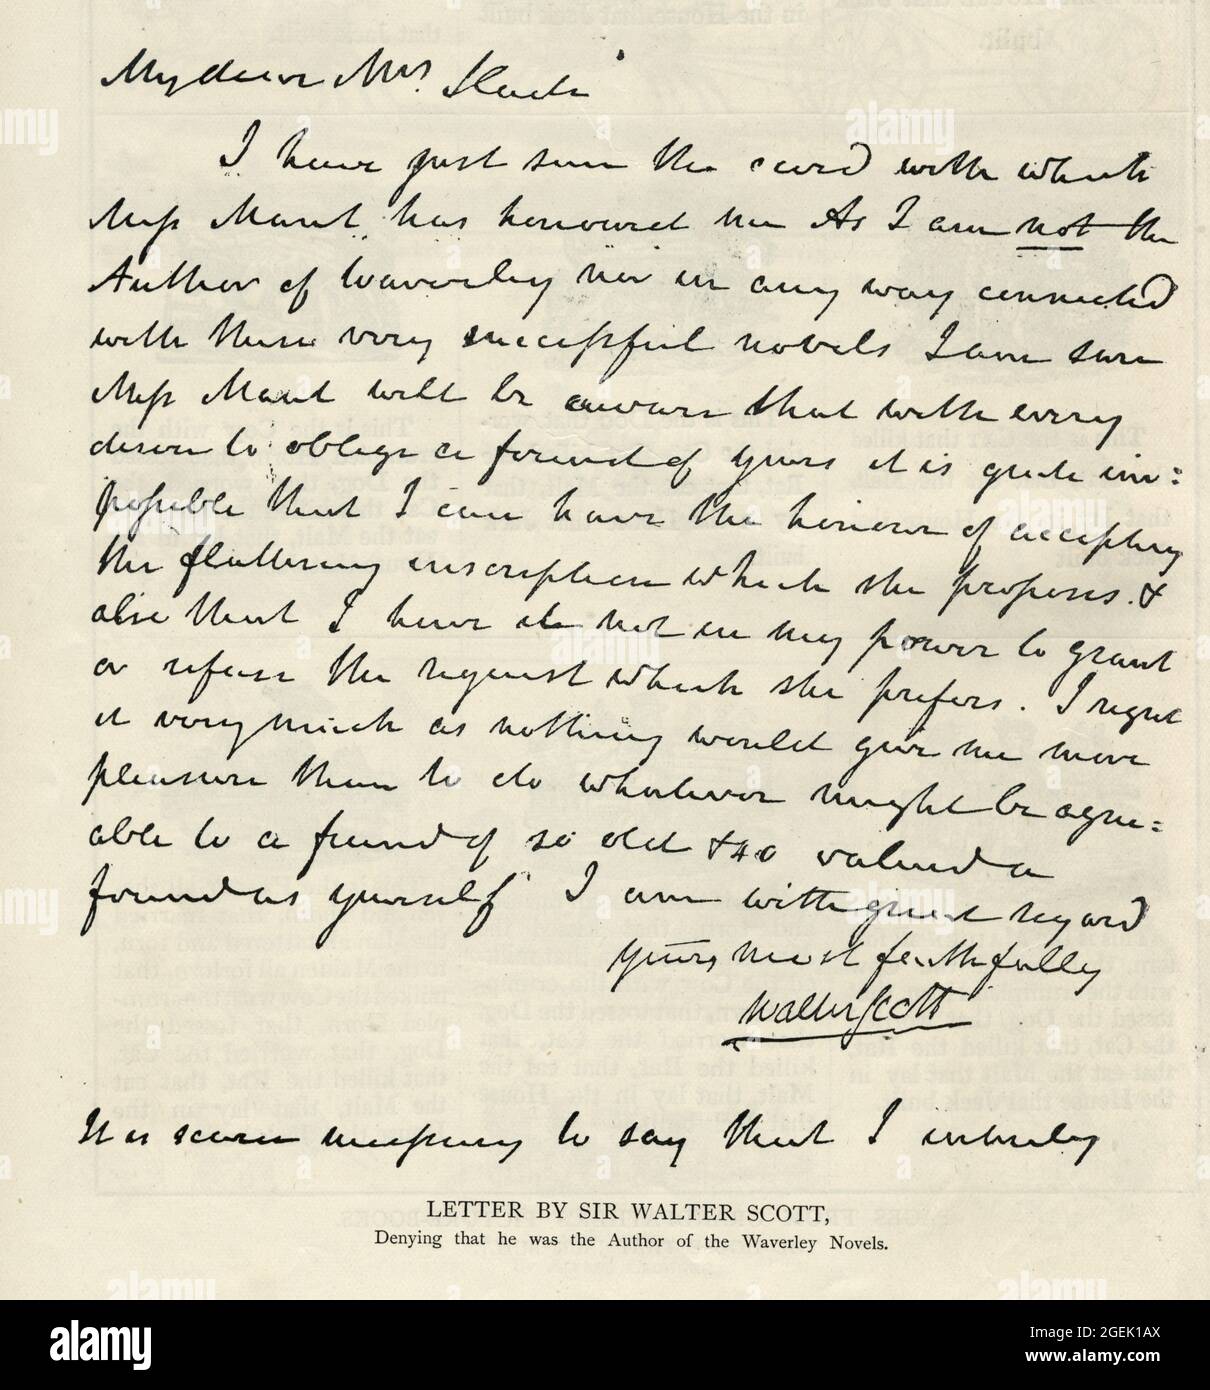 My dear Mrs.
I have just seen the card with which
Miss Mant has honoured me As I am not the
Author of Waverley nor in any way connected
with these very successful novels I am sure
Miss Mant will be aware that with every
desire to oblige a friend of yours it is quite im:
possible that I can have the honour of accepting
the flattering inscription which she proposes &
also that I have it not in my power to grant
or refuse the request which she prefers. I regret
it very much as nothing would give me more
pleasure than to do whatever might be agre=
able to a friend of so old & so valued a
friend as yourself I am with great regard
yours most faithfully
Walter Scott
It is scarce necessary to say that I entirely
LETTER BY SIR WALTER SCOTT,
Denying that he was the Author of the Waverley Novels.
alamy
Image ID: 2GEK1AX
www.alamy.com